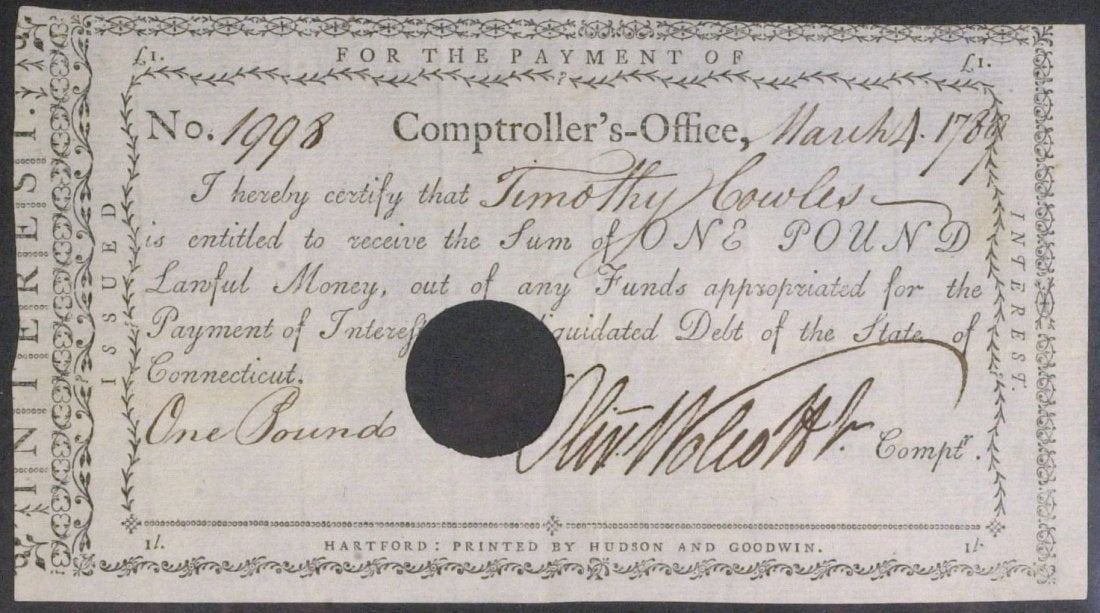 FOR THE PAYMENT OF
£1. £1.
No. 1998 Comptroller's-Office, March 4. 1789
I hereby certify that Timothy Cowles
is entitled to receive the Sum of ONE POUND
Lawful Money, out of any Funds appropriated for the
Payment of Interes liquidated Debt of the State of
Connecticut.
One Pound
Olivr Wolcott Jr. Comptr.
1l. 1l.
HARTFORD: PRINTED BY HUDSON AND GOODWIN.
INTEREST.
ISSUED
INTEREST.